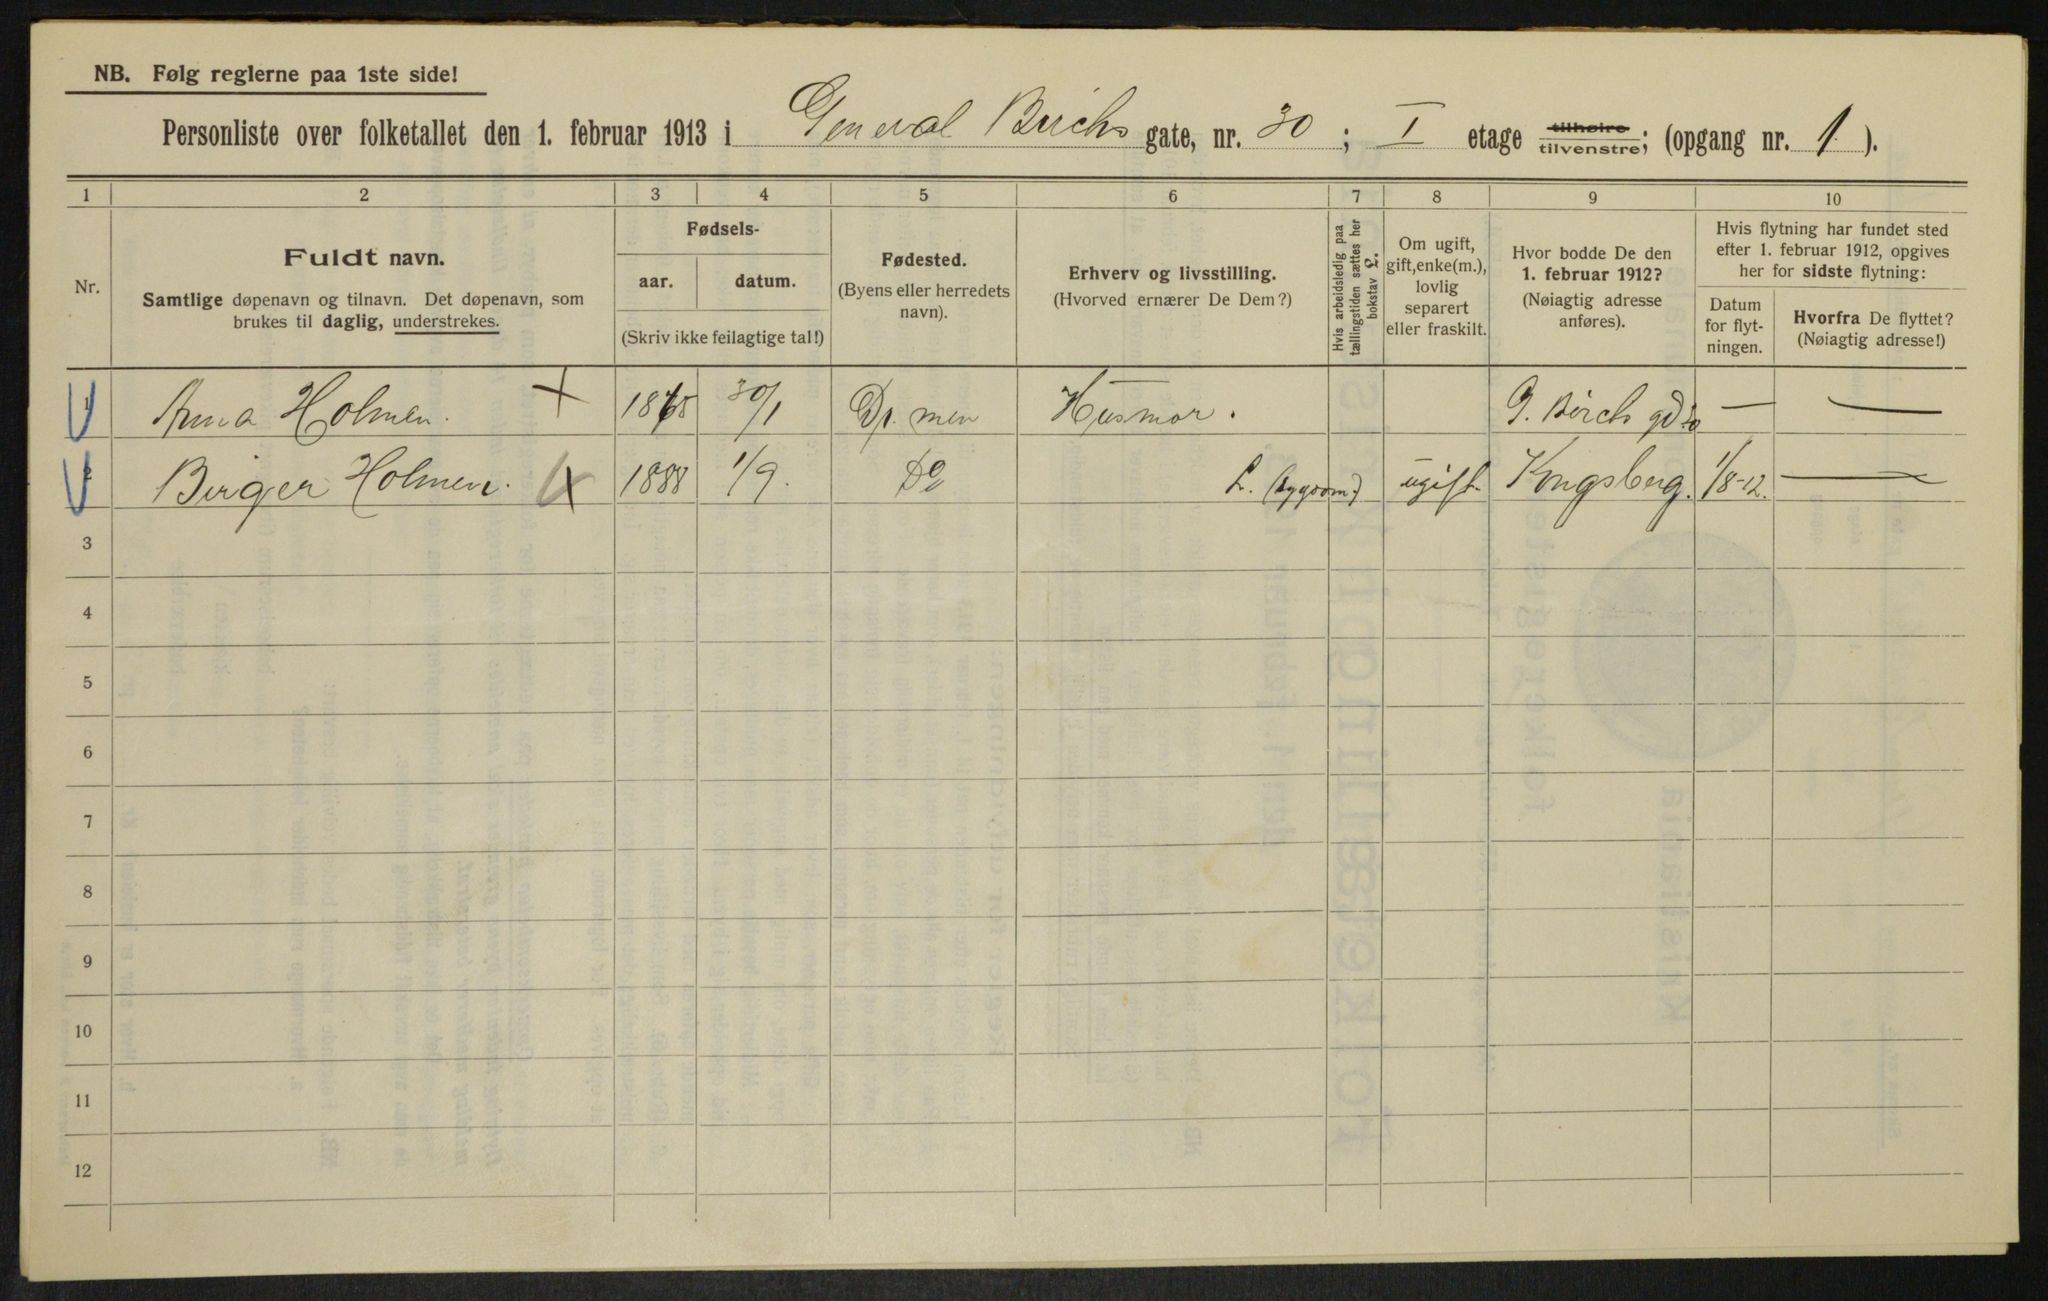 NB. Følg reglerne paa 1ste side!
Personliste over folketallet den 1. februar 1913 i General Birchs gate, nr. 30 ; I etage tilhøire tilvenstre; (opgang nr. 1 ).
1 2 3 4 5 6 7 8 9 10
Nr.
Fuldt navn.
Samtlige døpenavn og tilnavn. Det døpenavn, som
brukes til daglig, understrekes.
Fødsels-
aar. datum.
(Skriv ikke feilagtige tal!)
Fødested.
(Byens eller herredets
navn).
Erhverv og livsstilling.
(Hvorved ernærer De Dem?)
Hvis arbeidsledig paa
tællingstiden sættes her
bokstav L.
Om ugift,
gift, enke(m.),
lovlig
separert
eller fraskilt.
Hvor bodde De den
1. februar 1912?
(Nøiagtig adresse
anføres).
Hvis flytning har fundet sted
efter 1. februar 1912, opgives
her for sidste flytning:
Datum
for flyt-
ningen.
Hvorfra De flyttet?
(Nøiagtig adresse!)
1 Anna Holmen. 30/1 Dr. men Husmor. G. Birchs gd 30 — —
2 Birger Holmen. 1888 1/9. Do L. ugift. Kongsberg. 1/8-12. —
3
4
5
6
7
8
9
10
11
12